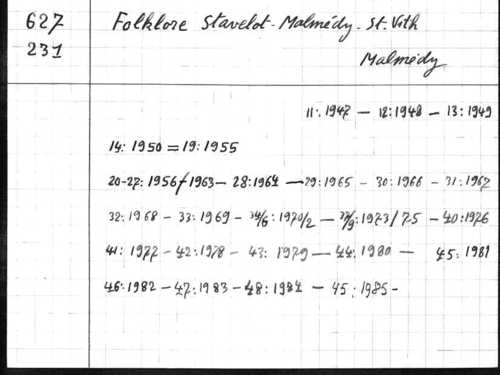 627
231
Folklore Stavelot - Malmédy - St. Vith
Malmédy
11: 1947 — 12: 1948 — 13: 1949
14: 1950 = 19: 1955
20-27: 1956/1963 — 28: 1964 — 29: 1965 - 30: 1966 - 31: 1967
32: 1968 - 33: 1969 - 34/6: 1970/2 — 37/9: 1973/75 - 40: 1976
41: 1977 - 42: 1978 - 43: 1979 — 44: 1980 — 45: 1981
46: 1982 - 47: 1983 - 48: 1984 — 45: 1985 -